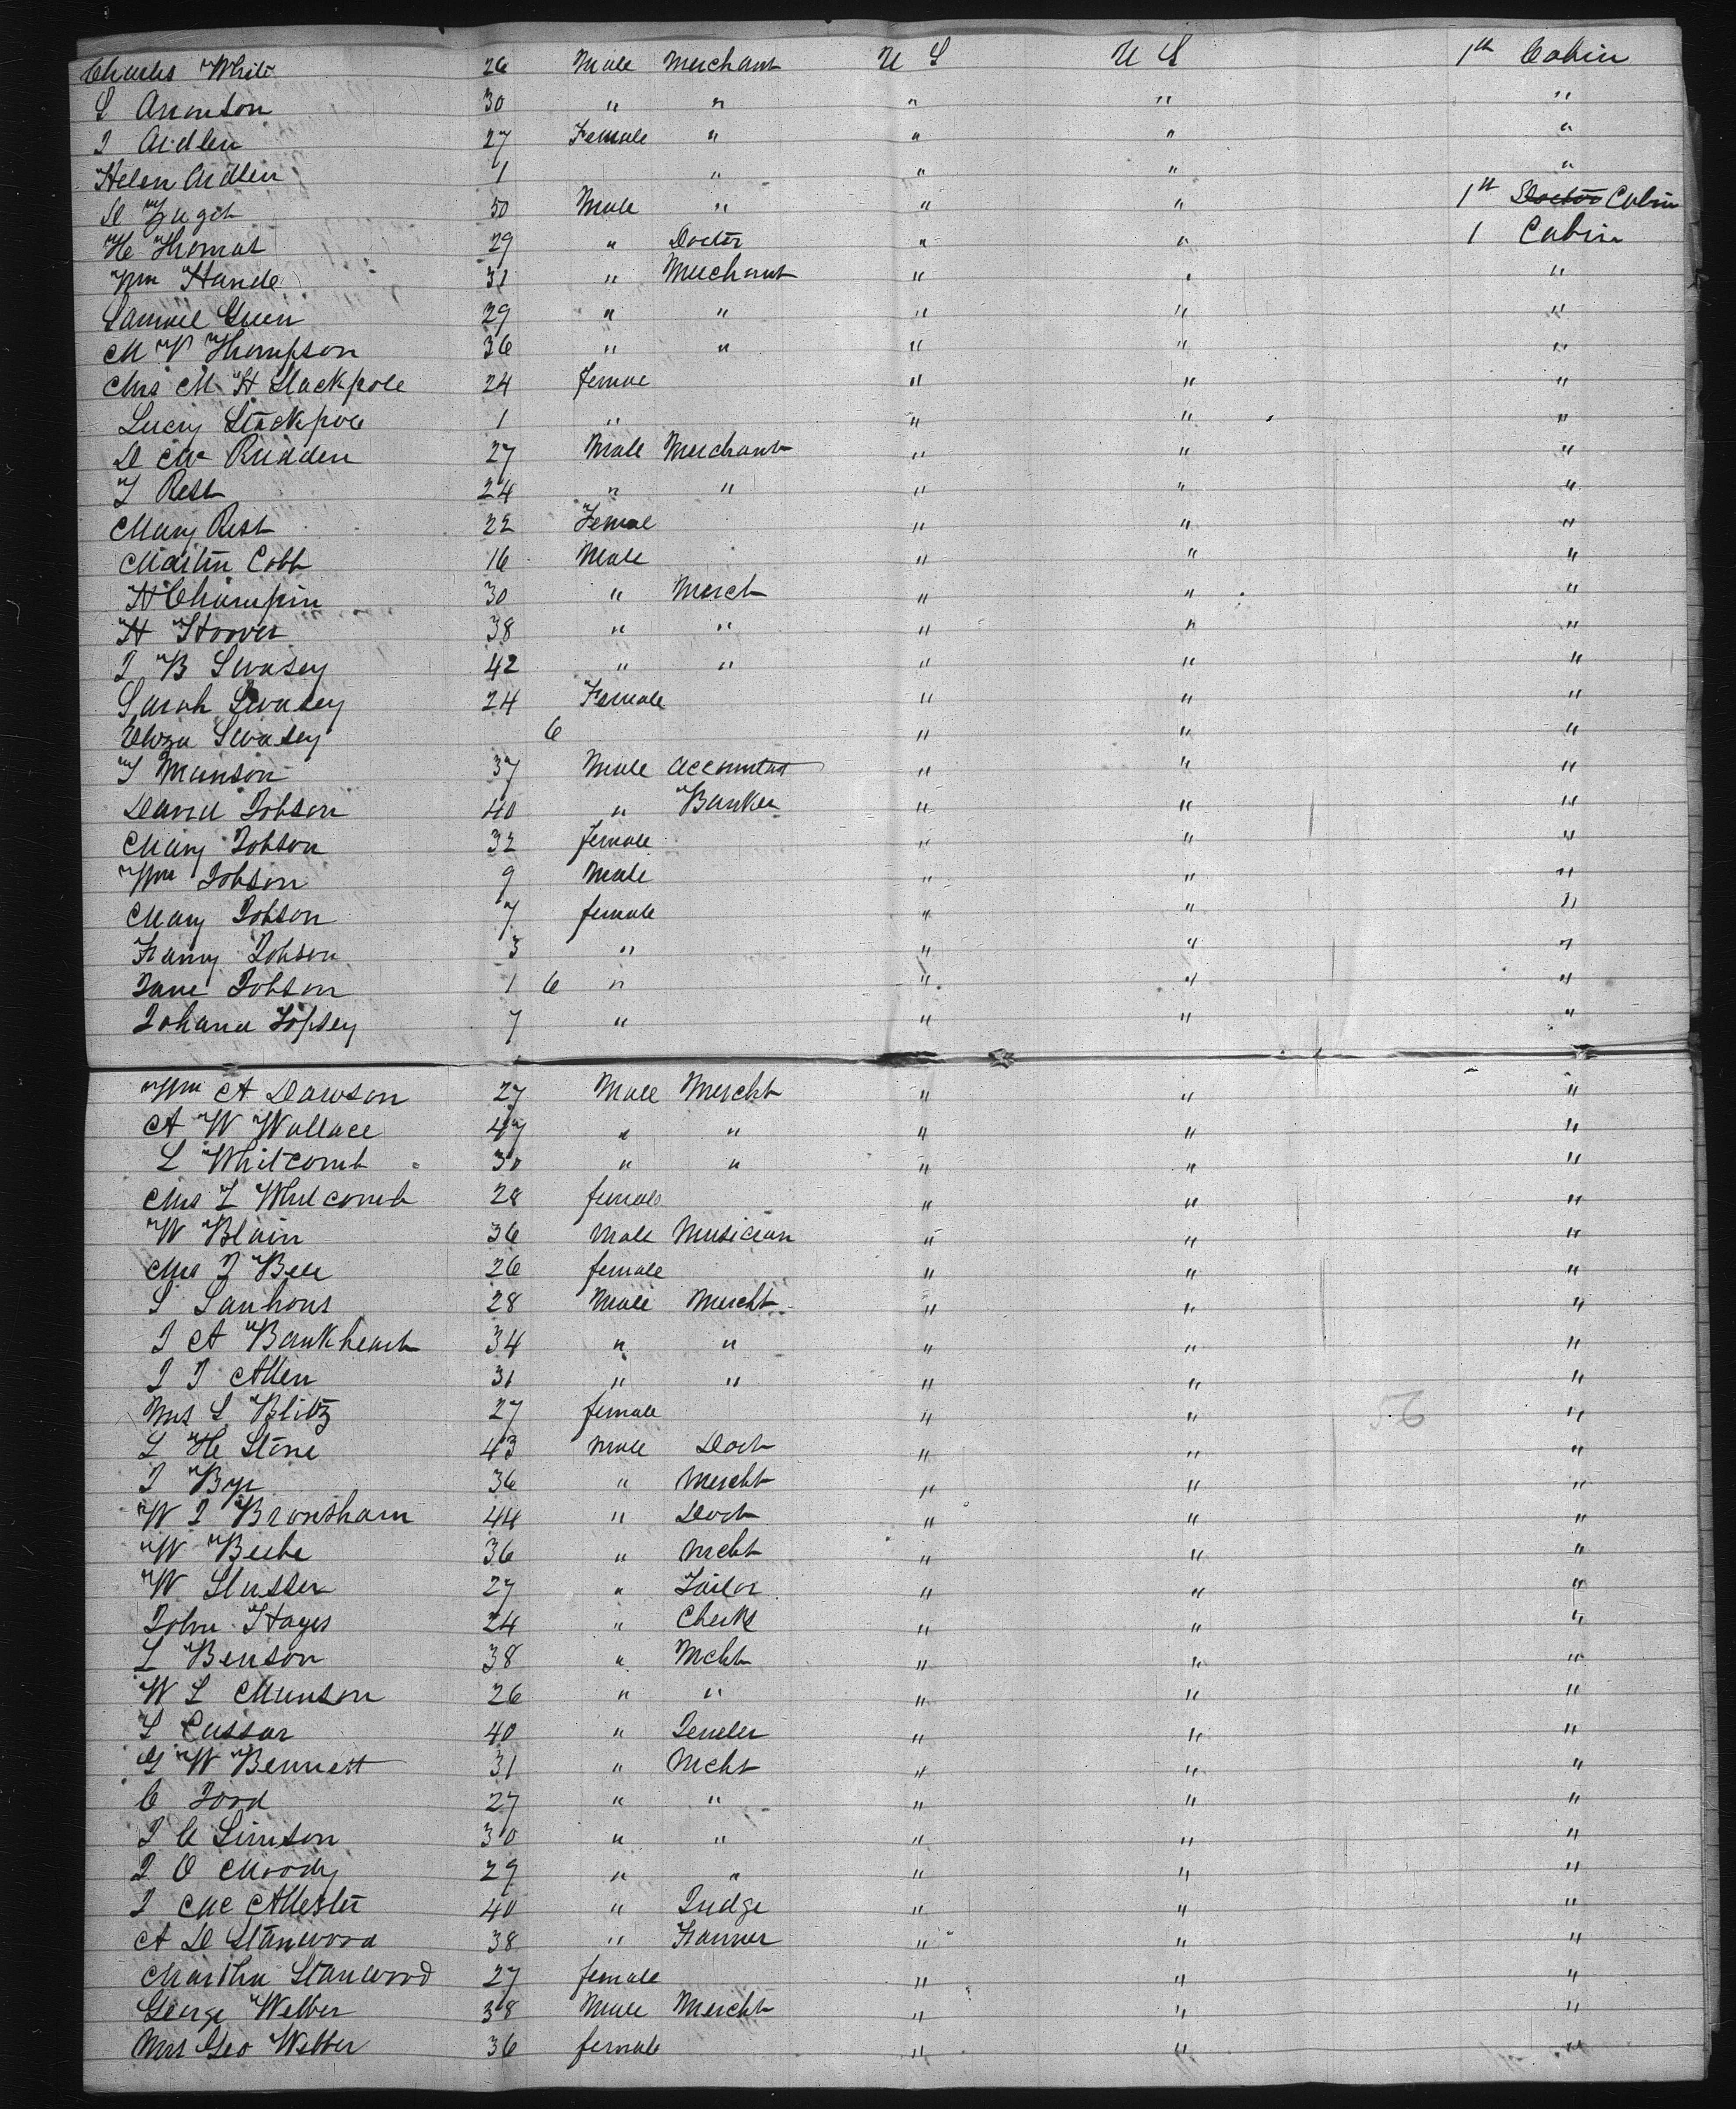 Charles White 26 Male Merchant U S U S 1st Cabin
S Aronson 30 " " " " "
J Aidlen 27 Female " " " "
Helen Aidlen 1 " " " "
50 Male " " " 1st Doctor Cabin
He Thomas 29 " Doctor " " 1 Cabin
Wm Hande 31 " Merchant " " "
Samuel Green 29 " " " " "
M V Thompson 36 " " " " "
Mrs M H Stackpole 24 female " " "
Lucy Stackpole 1 " " " "
D Mc 27 Male Merchant " " "
T Rest 24 " " " " "
Mary Rest 22 Female " " "
Martin Cobb 16 Male " " "
H Champin 30 " Merch " " "
H Hoover 38 " " " " "
J B Swasey 42 " " " " "
Sarah Swasey 24 Female " " "
Eliza Swasey 6 " " "
T Munson 37 Male Accountant " " "
David Jobson 40 " Banker " " "
Mary Jobson 32 female " " "
Wm Jobson 9 Male " " "
Mary Jobson 7 female " " "
Fanny Jobson 3 " " " "
Jane Jobson 1 6 " " " "
Johana Topsey 7 " " " "
Wm A Dawson 27 Male Mercht " " "
A W Wallace 47 " " " " "
L Whitcomb 30 " " " " "
Mrs L Whitcomb 28 female " " "
W Blain 36 Male Musician " " "
Mrs J Bell 26 female " " "
S Sanhons 28 Male Mercht " " "
J A Bankheart 34 " " " " "
J J Allen 31 " " " " "
Mrs L Blitz 27 female " " "
L He Stone 43 male Doct " " "
J Bye 36 " Mercht " " "
W J Bronsham 44 " Doct " " "
W Beebe 36 " Mcht " " "
W Slusser 27 " Tailor " " "
John Hayes 24 " Clerk " " "
L Benson 38 " Mcht " " "
W L Munson 26 " " " " "
S Cassar 40 " Jeweler " " "
G W Bennett 31 " Mcht " " "
C Ford 27 " " " " "
J C Simson 30 " " " " "
J O Moody 29 " " " " "
J Mc Allester 40 " Judge " " "
A D Stanwood 38 " Farmer " " "
Martha Stanwood 27 female " " "
George Webber 38 Male Mercht " " "
Mrs Geo Webber 36 female " " "